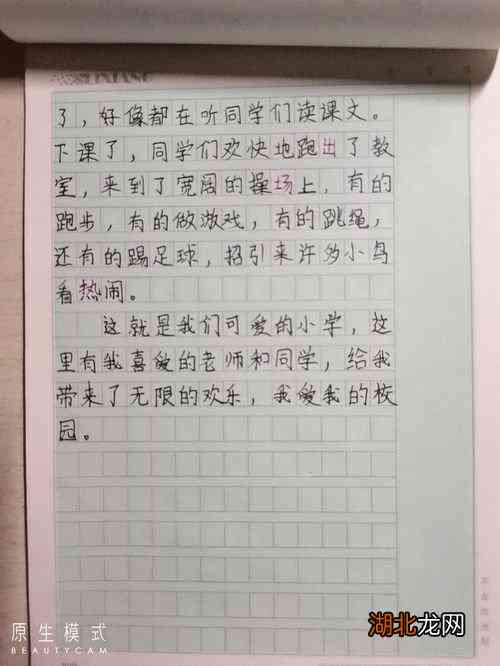 了，好像都在听同学们读课文。
下课了，同学们欢快地跑出了教
室，来到了宽阔的操场上，有的
跑步，有的做游戏，有的跳绳，
还有的踢足球，招引来许多小鸟
看热闹。
这就是我们可爱的小学，这
里有我喜爱的老师和同学，给我
带来了无限的欢乐，我爱我的校
园。
原生模式
BEAUTYCAM
湖北龙网